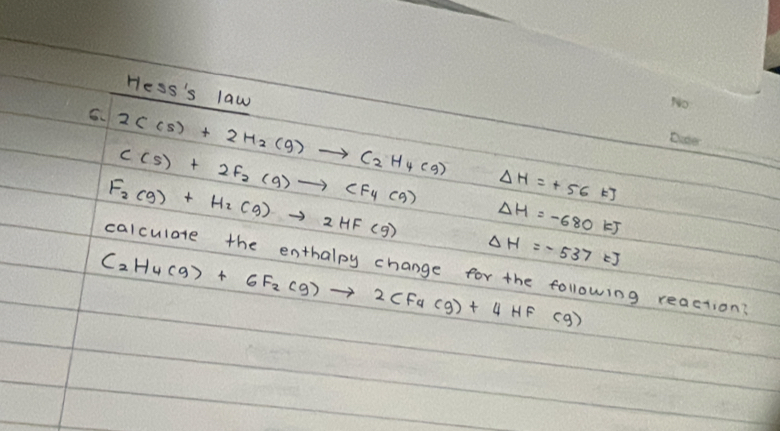 No
Date
Hess's law
6. 2C (s) + 2H₂ (g) → C₂H₄ (g) ΔH = +56 kJ
C (s) + 2F₂ (g) → CF₄ (g) ΔH = -680 kJ
F₂ (g) + H₂ (g) → 2HF (g) ΔH = -537 kJ
calculate the enthalpy change for the following reaction?
C₂H₄ (g) + 6F₂ (g) → 2CF₄ (g) + 4 HF (g)